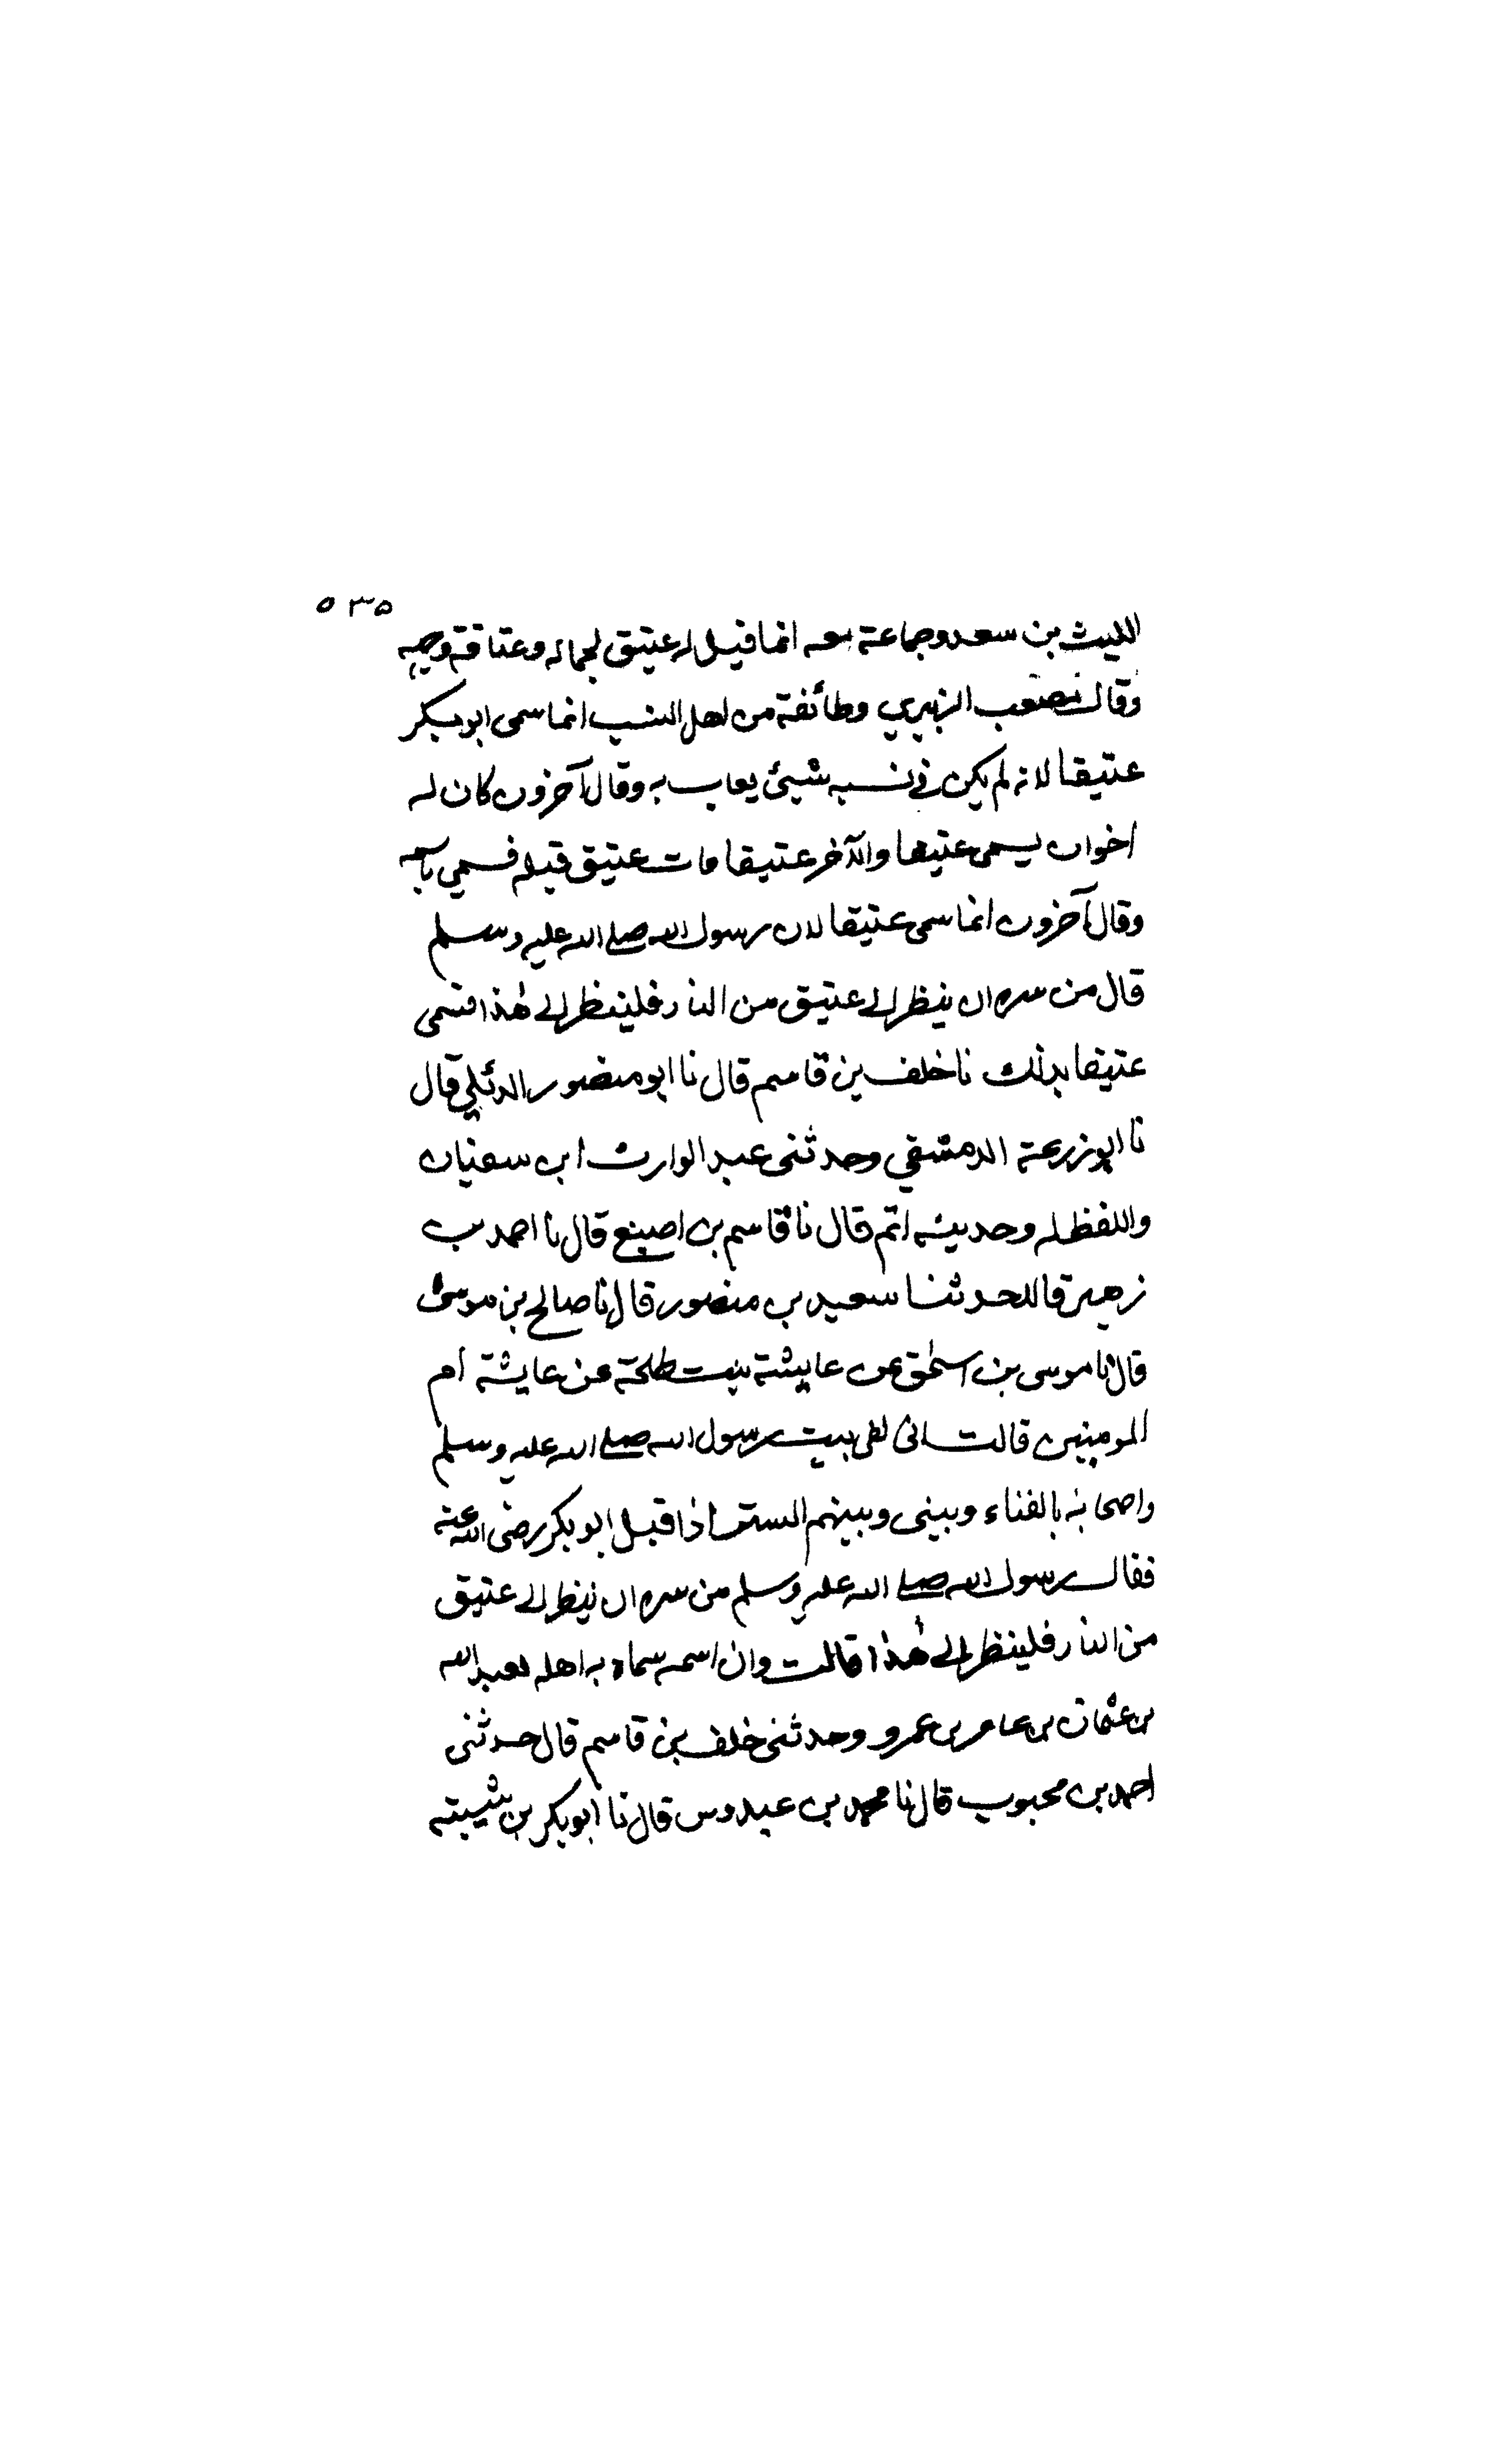 ٥٣٥
الليث بن سعد وجماعة معه انما قيل له عتيق لجماله وعتاقة وجهه
وقال مصعب الزبيري وطائفة من اهل النسب انما سمى ابو بكر
عتيقا لانه لم يكن في نسبه شيئ يعاب به وقال آخرون كان له
اخوان يسمى عتيقا والآخر عتيقا مات عتيق قبله فسمي باسمه
وقال آخرون انما سمى عتيقا لان رسول الله صلى الله عليه وسلم
قال من سره ان ينظر الى عتيق من النار فلينظر الى هذا فسمى
عتيقا بذلك نا خلف بن قاسم قال نا ابو منصور الدئلي قال
نا ابو زرعة الدمشقي وحدثنى عبد الوارث ابن سفيان
واللفظ له وحديثه اتم قال نا قاسم بن اصبغ قال نا احمد بن
زهير قال حدثنا سعيد بن منصور قال نا صالح بن موسى
قال نا موسى بن اسحق عن عايشة بنت طلحة عن عايشة ام
المومنين قالت انى لفى بيت رسول الله صلى الله عليه وسلم
واصحابه بالفناء وبينى وبينهم الستر اذا قبل ابو بكر رضى الله عنه
فقال رسول الله صلى الله عليه وسلم من سره ان ينظر الى عتيق
من النار فلينظر الى هذا قالت وان اسمه سماه به اهله لعبد الله
بن عثمان بن عامر بن عمرو وحدثنى خلف بن قاسم قال حدثنى
احمد بن محبوب قال نا محمد بن عبدوس قال نا ابو بكر بن شيبة